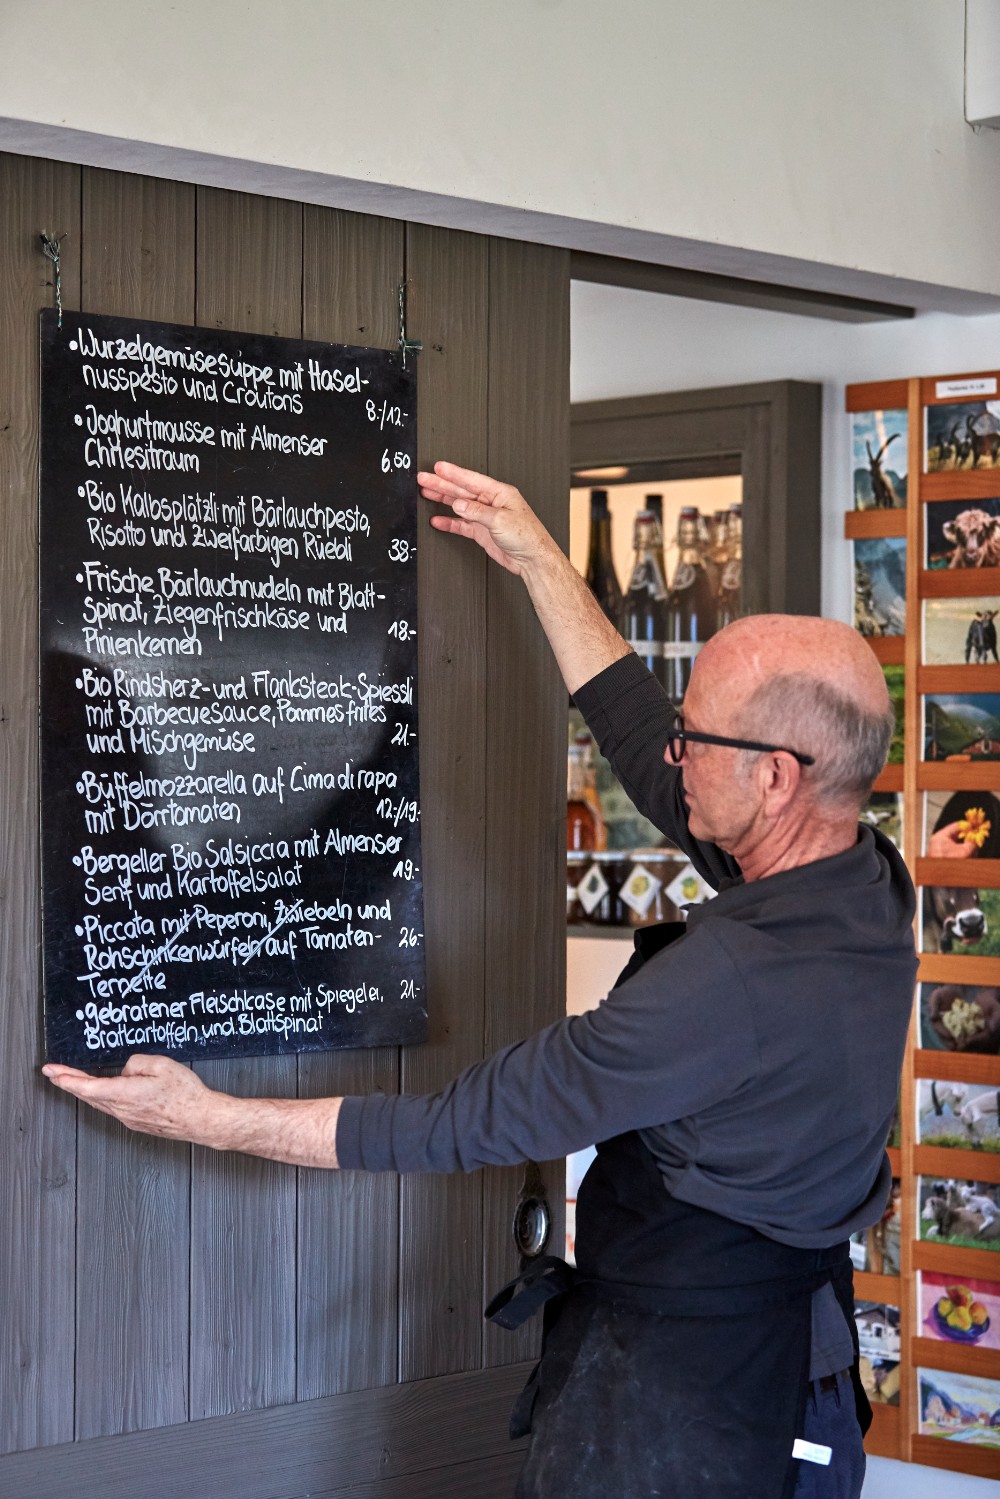 •Wurzelgemüsesuppe mit Hasel-
nusspesto und Croutons
8.-/12.-
•Joghurtmousse mit Almenser
Chriesitraum
6.50
•Bio Kalbsplätzli mit Bärlauchpesto,
Risotto und zweifarbigen Rüebli
38.-
•Frische Bärlauchnudeln mit Blatt-
spinat, Ziegenfrischkäse und
Pinienkernen
18.-
•Bio Rindsherz- und Flanksteak-Spiessli
mit Barbecuesauce, Pommes frites
und Mischgemüse
21.-
•Büffelmozzarella auf Cima di rapa
mit Dörrtomaten
12.-/19.-
•Bergeller Bio Salsiccia mit Almenser
Senf und Kartoffelsalat
19.-
•Piccata mit Peperoni, Zwiebeln und
Rohschinkenwürfeln auf Tomaten-
26.-
•gebratener Fleischkäse mit Spiegelei,
21.-
Bratkartoffeln und Blattspinat